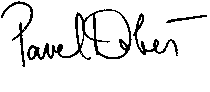 Pavel Obeš